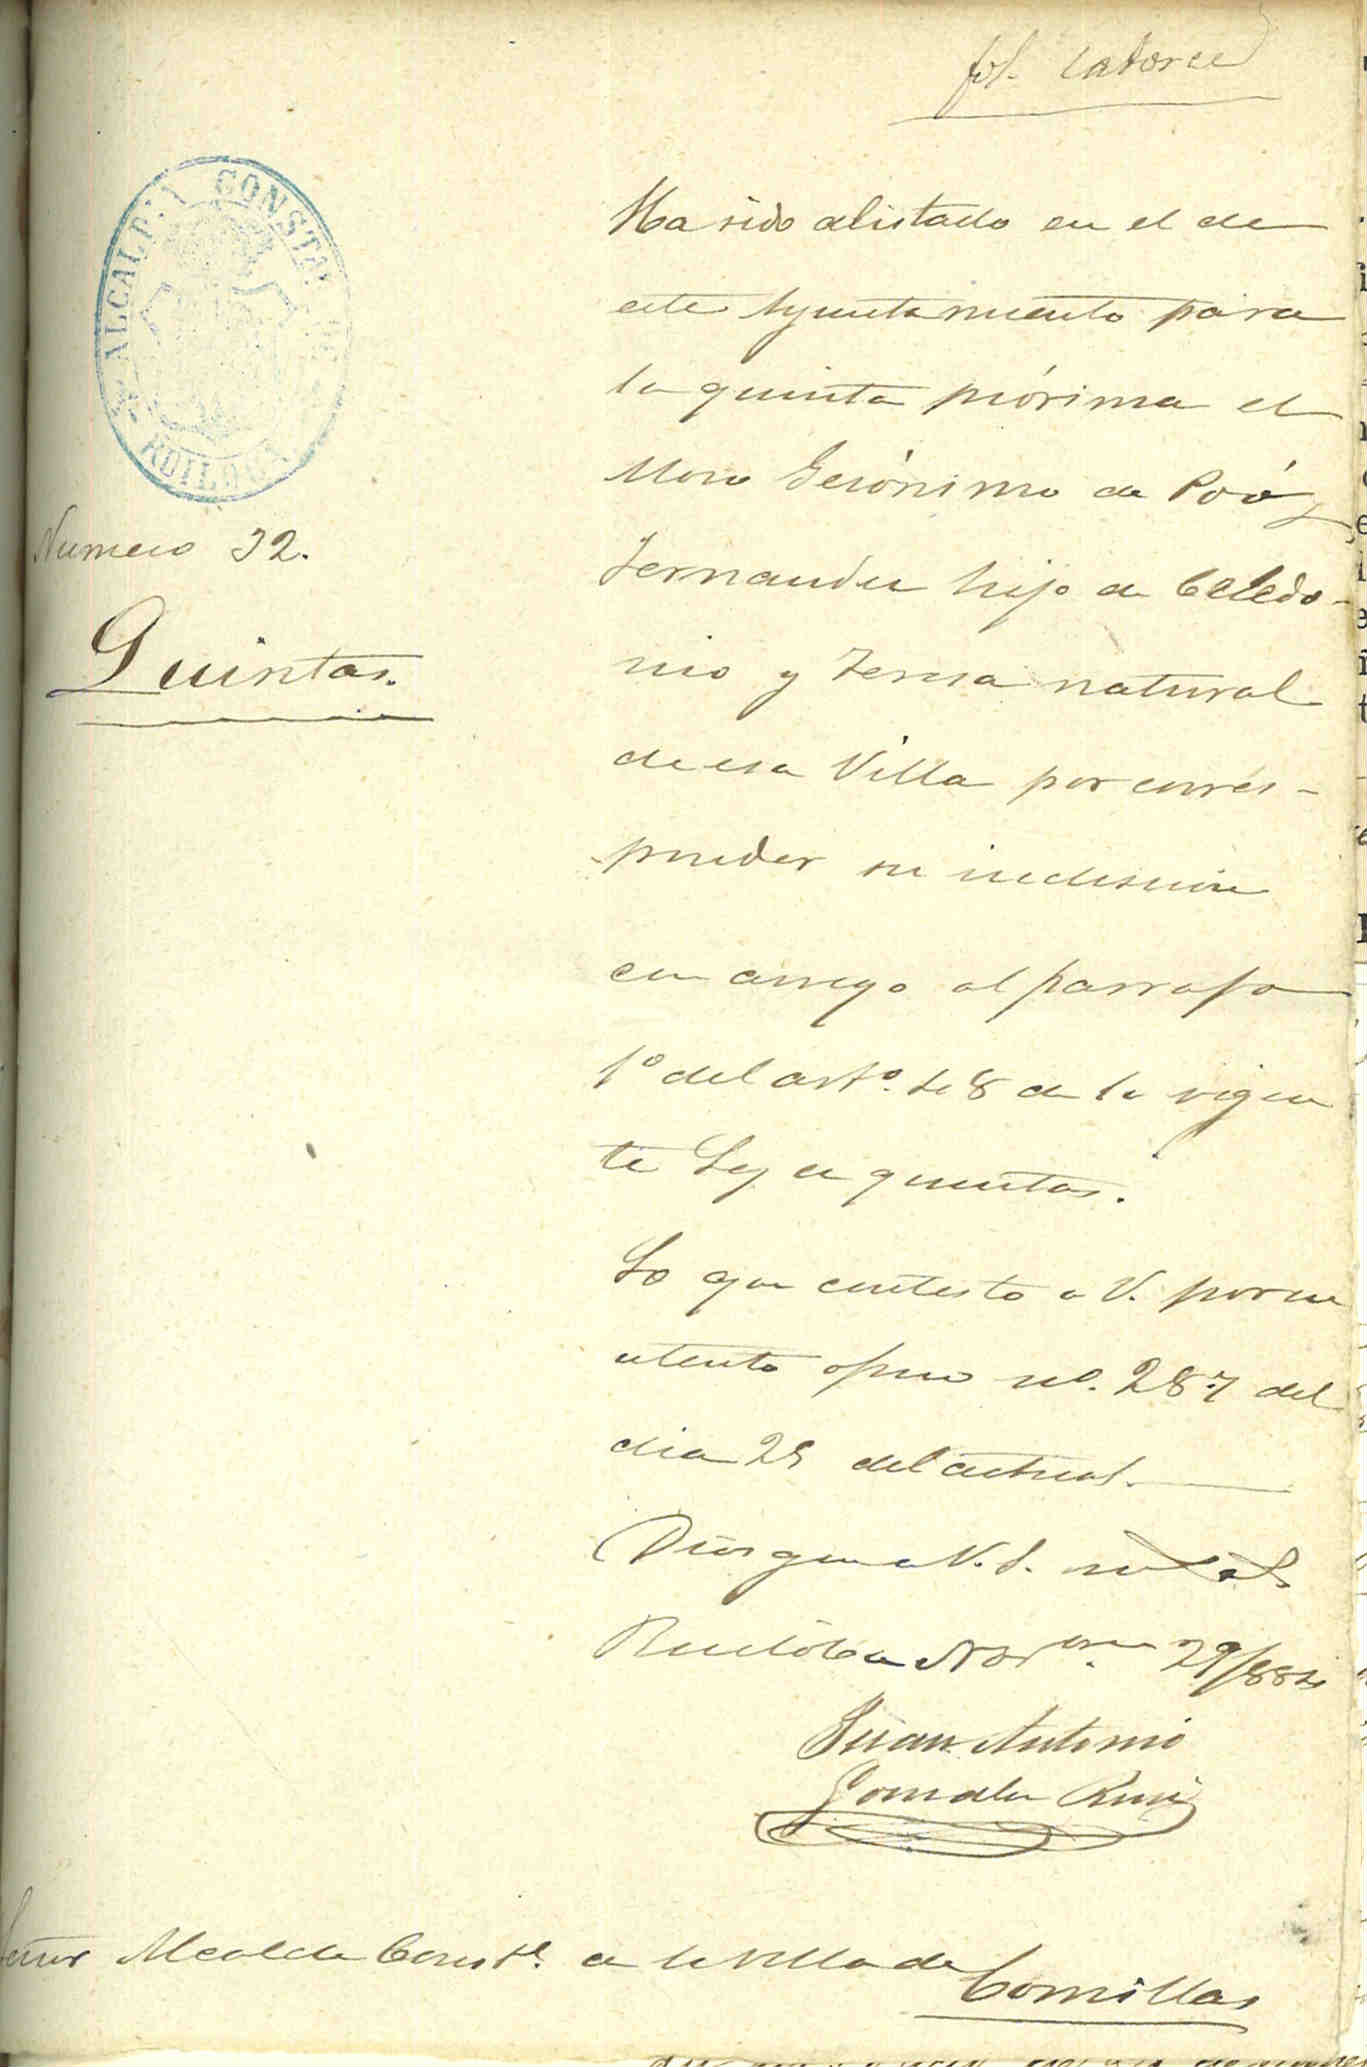 fol. catorce
ALCALDIA CONSTAL DE
RUILOBA
Numero 32.
Quintas.
Ha sido alistado en el de
este Ayuntamiento para
la quinta próxima el
Mozo Gerónimo de
Fernandez hijo de Celedo-
nio y Teresa natural
de esa Villa por corres-
ponder su inclusion
con arreglo al parrafo
1º del artº. 48 de la vigen
te Ley de quintas.
Lo que contesto a V. por su
atento oficio nº. 287 del
dia 28 del actual.
Dios gue a V. S. ms as
Ruilóba Novbre. 29/884
Juan Antonio
Gonzalez Ruiz
Señor Alcalde Constl. de la Villa de
Comillas